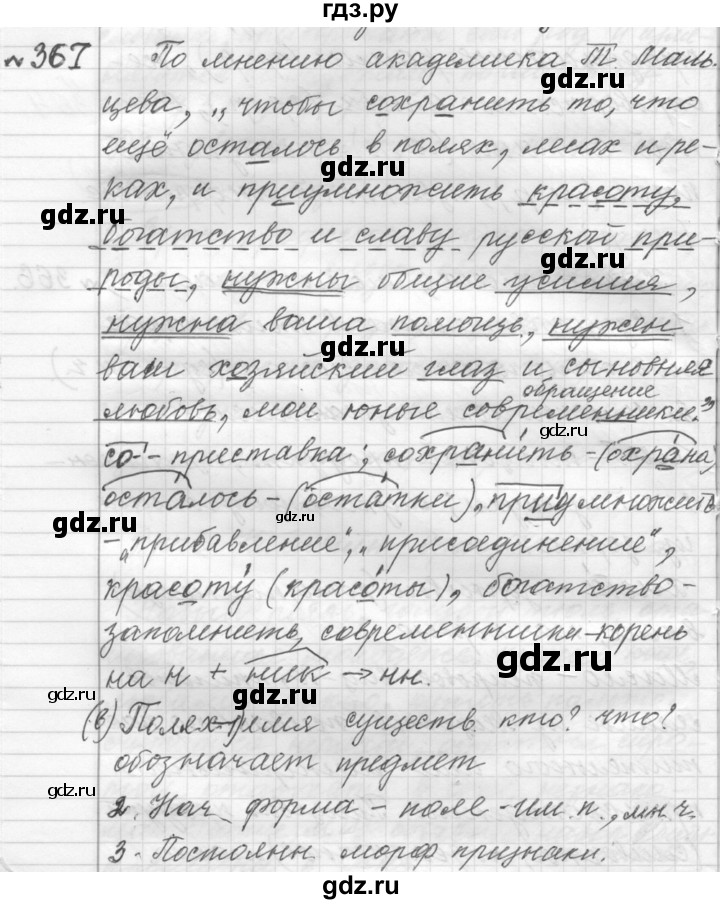 гдз.ру
№367 По мнению академика Т Маль
цева, „чтобы сохранить то, что
gdz.ru
ещё осталось в полях, лесах и ре-
gdz.ru
ках, и приумножить красоту,
gdz.ru
богатство и славу русской при-
gdz.ru
роды, нужны общие усилия,
нужна ваша помощь, нужен
gdz.ru
ваш хозяйский глаз и сыновняя
обращение
любовь, мои юные современники."
gdz.ru
со- - приставка; сохранить - (охрана)
осталось - (остатки), приумножить
gdz.ru
gdz.ru
- „прибавление", „присоединение",
gdz.ru
красоту (красоты), богатство-
запомнить, современники-корень
gdz.ru
на н + ник → нн.
gdz.ru
gdz.ru
(6) Полях-1) имя существ кто? что?
обозначает предмет
2. Нач. форма - поле - им. п., мн. ч.
3. Постоянн морф признаки.
gdz.ru